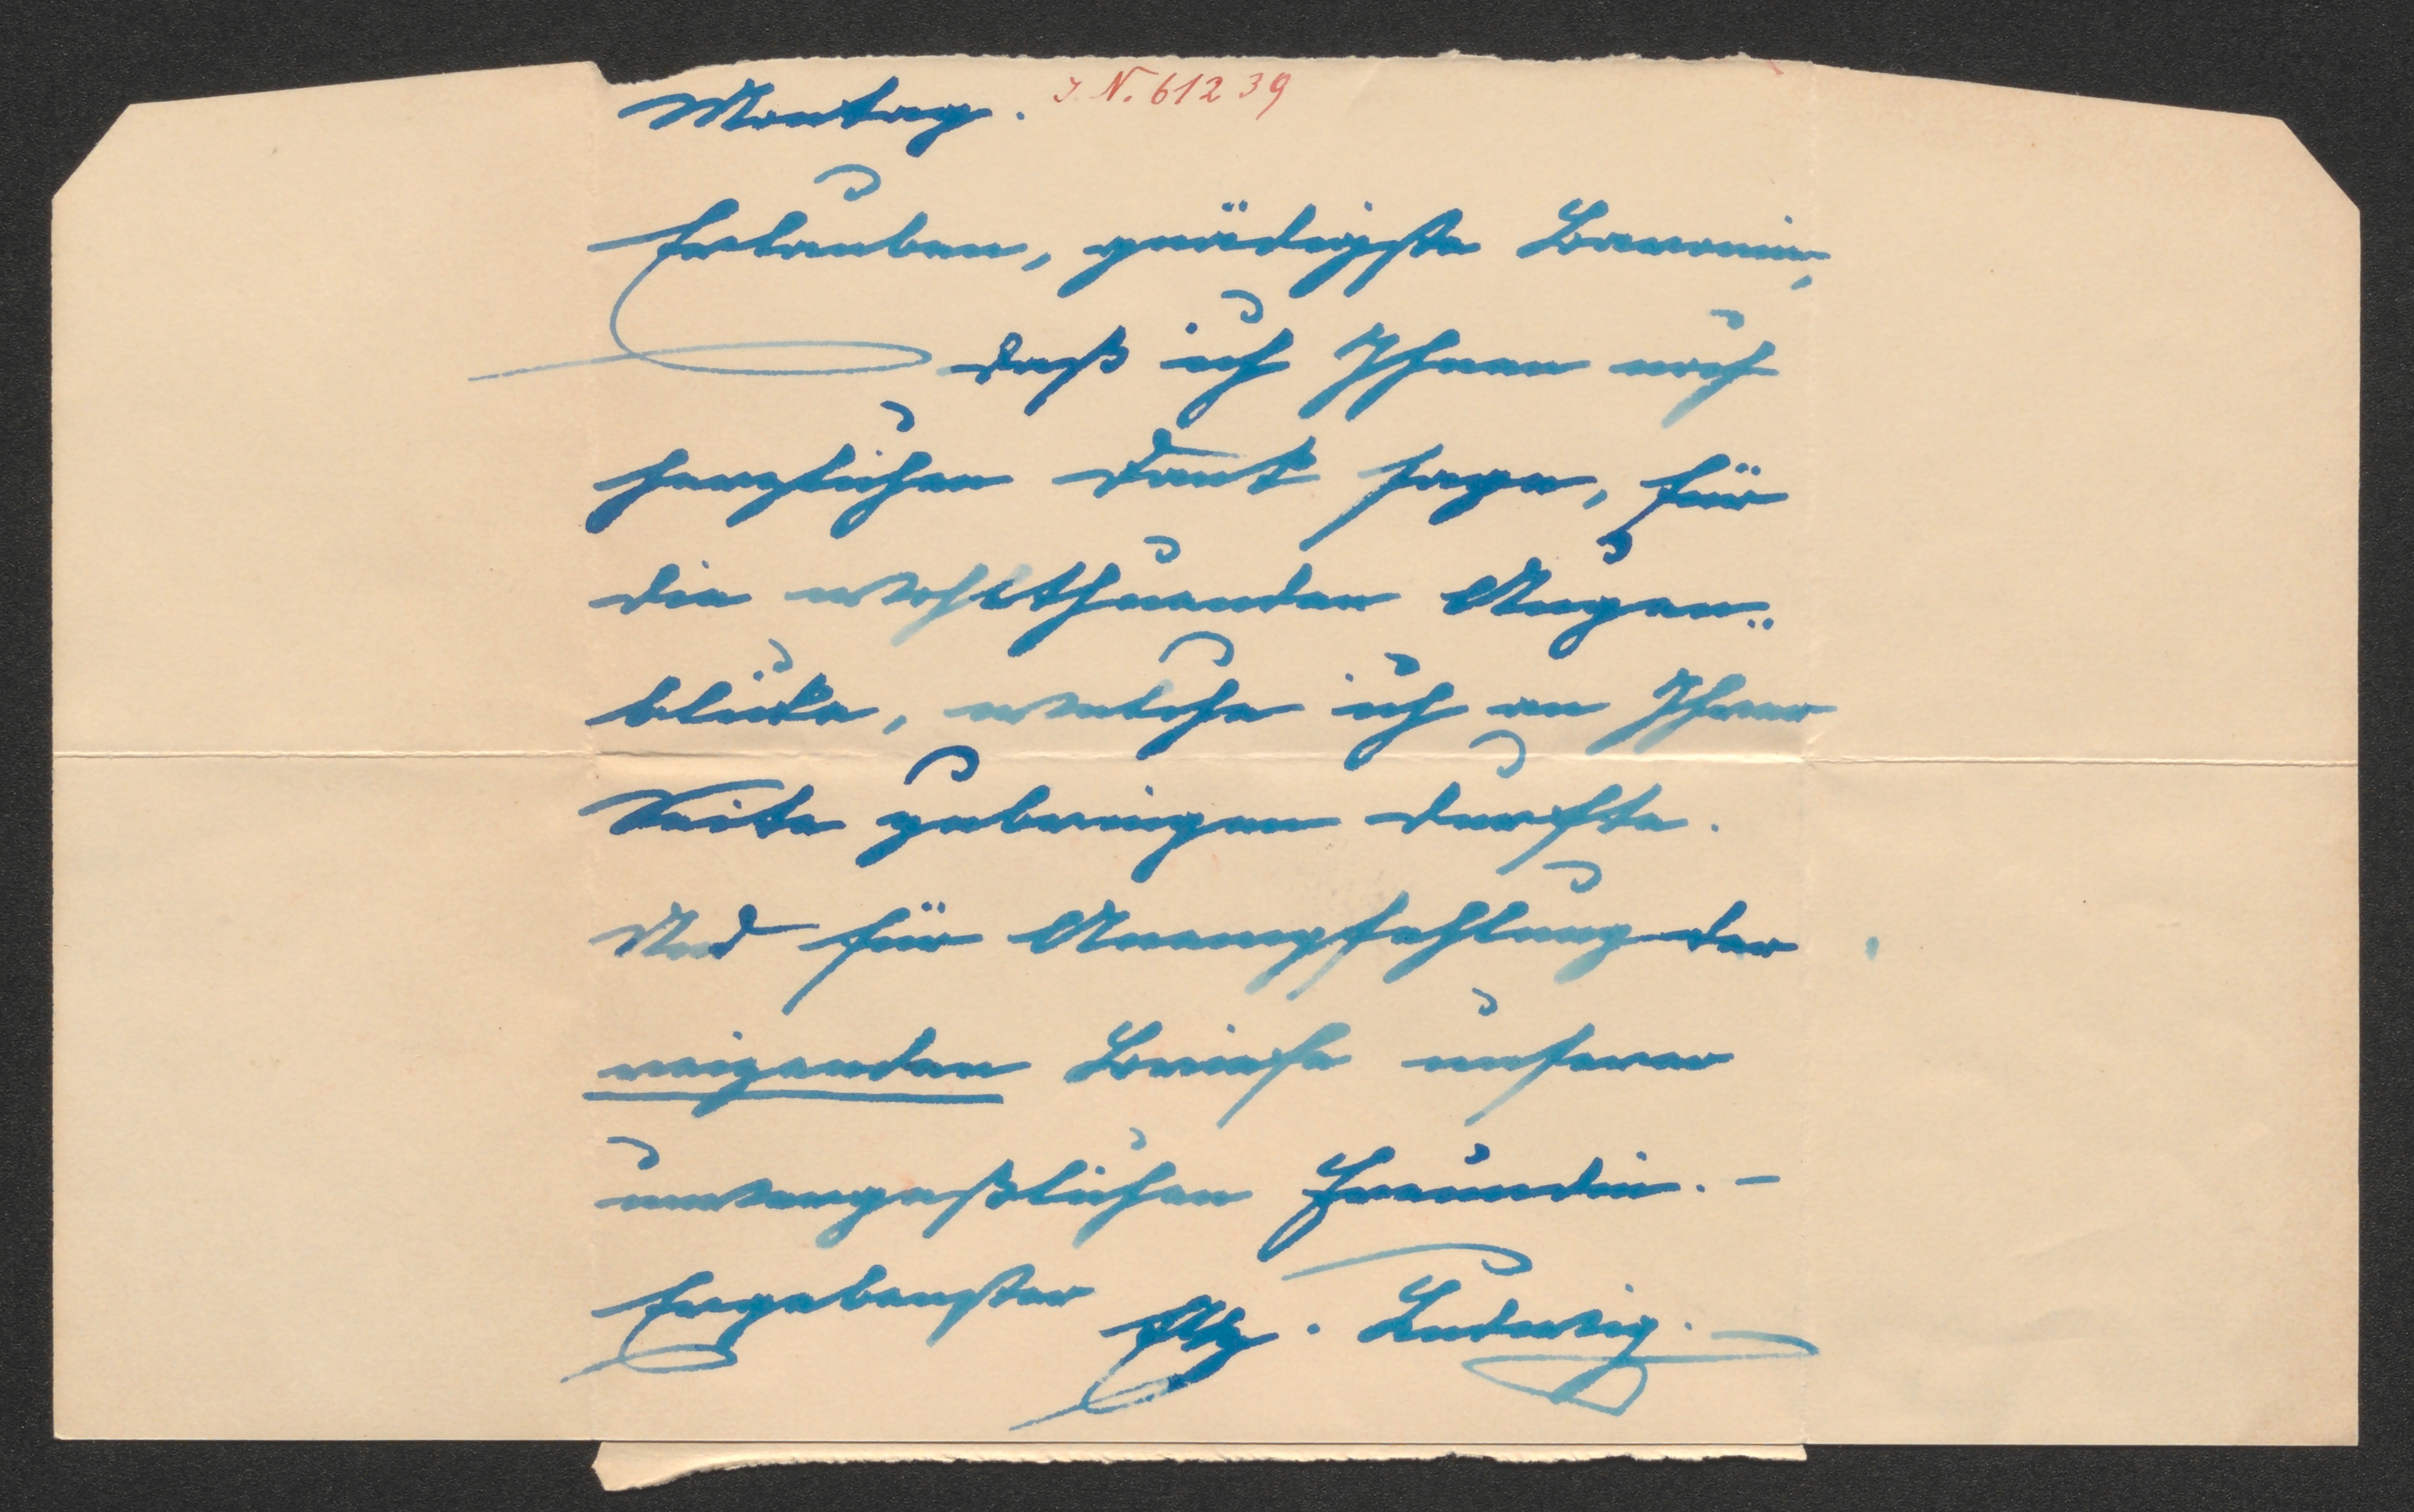 Montag.
J. N. 61239
Erlauben, gnädigste Baronin,
daß ich Ihnen noch
herzlichen Dank sage, für
die wohlthuenden Augen=
blicke, welche ich an Ihrer
Seite zubringen durfte.
Und für Anempfehlung der
reizenden Briefe unserer
unvergeßlichen Freundin. -
Ergebenster Hg. Ludwig.